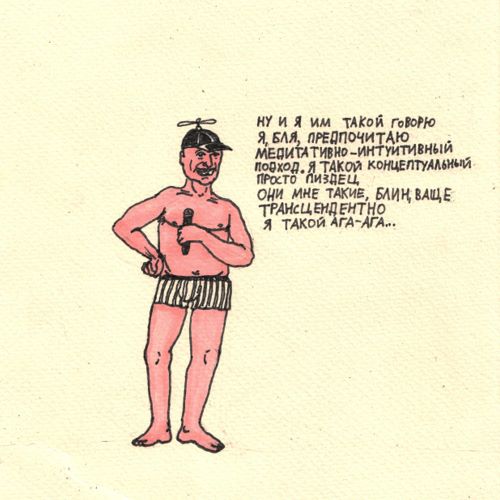 НУ И Я ИМ ТАКОЙ ГОВОРЮ
Я, БЛЯ, ПРЕДПОЧИТАЮ
МЕДИТАТИВНО-ИНТУИТИВНЫЙ
ПОДХОД. Я ТАКОЙ КОНЦЕПТУАЛЬНЫЙ
ПРОСТО ПИЗДЕЦ
ОНИ МНЕ ТАКИЕ, БЛИН, ВАЩЕ
ТРАНСЦЕНДЕНТНО
Я ТАКОЙ АГА-АГА...